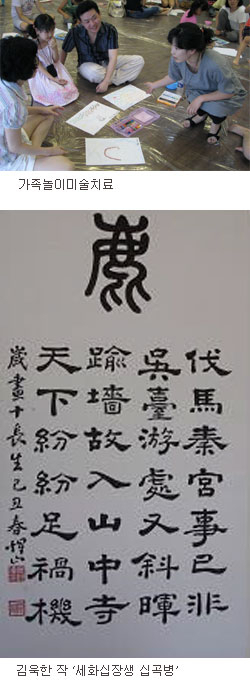 가족놀이미술치료
鹿
伐馬秦宮事已非
吳臺游處又斜暉
踰墻故入山中寺
天下紛紛足禍機
歲畫十長生己丑春
김욱한 작 ‘세화십장생 십곡병’